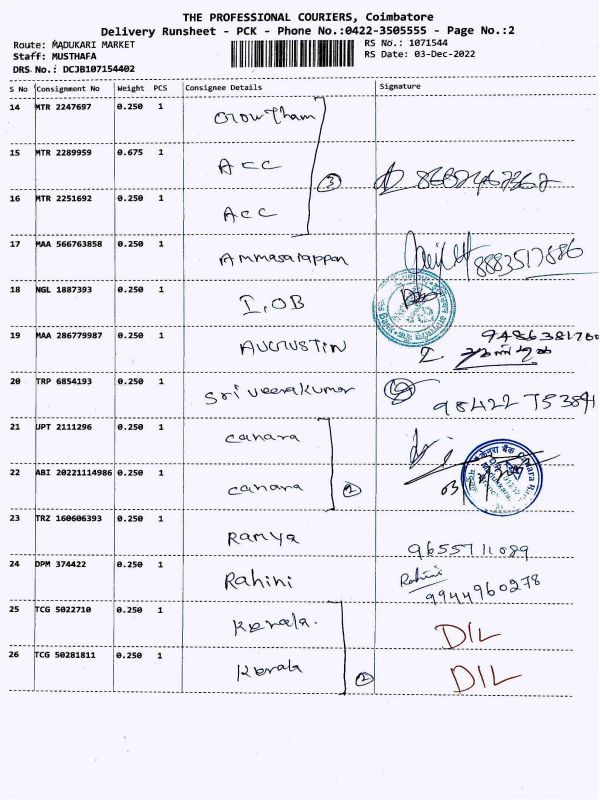 THE PROFESSIONAL COURIERS, Coimbatore
Delivery Runsheet - PCK - Phone No.:0422-3505555 - Page No.:2
Route: MADUKARI MARKET
RS No.: 1071544
Staff: MUSTHAFA
RS Date: 03-Dec-2022
DRS No.: DCJB107154402
S No Consignment No Weight PCS Consignee Details Signature
14 MTR 2247697 0.250 1
15 MTR 2289959 0.675 1 Acc
3
16 MTR 2251692 0.250 1 Acc
17 MAA 566763858 0.250 1 Ammasaiappan
18 NGL 1887393 0.250 1 I.OB
19 MAA 286779987 0.250 1 AUGUSTIN
20 TRP 6854193 0.250 1 Sri veerakumar 98422 75384
21 UPT 2111296 0.250 1 canara
22 ABI 20221114986 0.250 1 canara 2
23 TRZ 160606393 0.250 1 Ramya 9655711089
24 DPM 374422 0.250 1 Rahini Rahini
9944960278
25 TCG 5022710 0.250 1 Kerala. DIL
26 TCG 50281811 0.250 1 Kerala 2 DIL